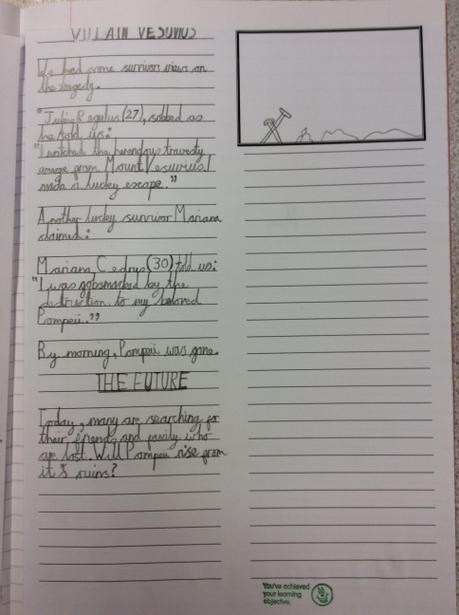 VILLAIN VESUVIUS
We had some survivor views on
the tragedy.
"Julius Regulus (27), sobbed as
he told us:
"I watched the horrendous travesty
emerge from Mount Vesuvius. I
made a lucky escape."
Another lucky survivor Mariana
claimed:
Mariana Cedrus (30) told us:
"I was gobsmacked by the
destruction to my beloved
Pompeii."
By morning, Pompeii was gone.
THE FUTURE
Today, many are searching for
their friends and family who
are lost. Will Pompeii rise from
it's ruins?
You've achieved
your learning
objective.